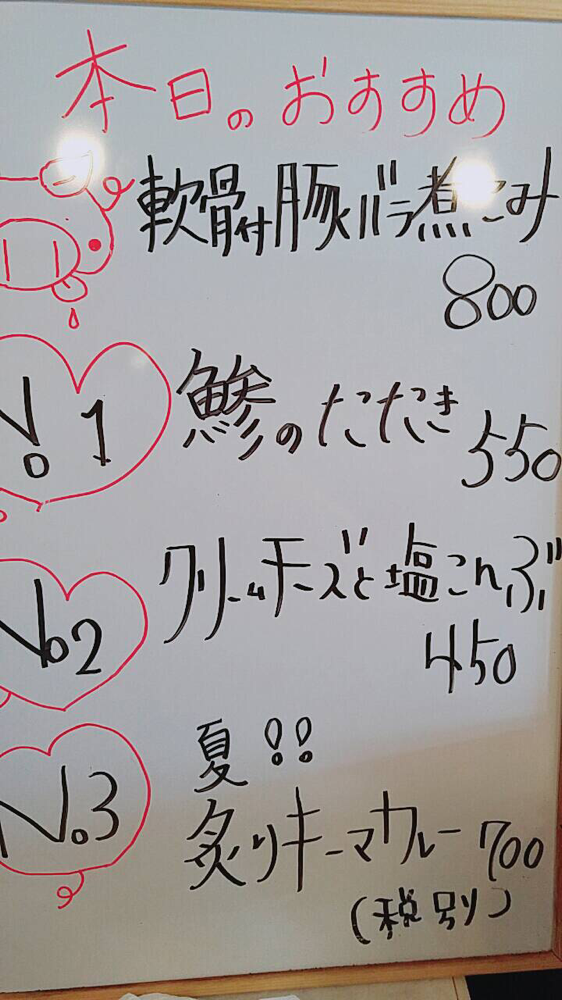 本日のおすすめ
軟骨付豚バラ煮こみ
800
No.1 鯵のたたき 550
No.2 クリームチーズと塩こんぶ
450
夏!!
No.3 炙りキーマカレー 700
(税別)